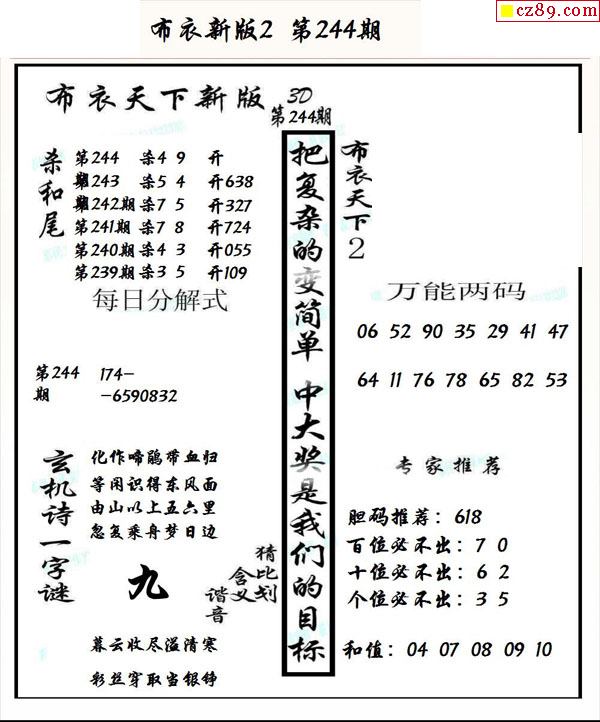 cz89.com
布衣新版2 第244期
布衣天下新版
3D
第244期
杀和尾
第244 杀4 9 开
期243 杀5 4 开638
期242期杀7 5 开327
第241期杀7 8 开724
第240期杀4 3 开055
第239期杀3 5 开109
每日分解式
第244 174-
期 -6590832
玄机诗一字谜
化作啼鹃带血归
等闲识得东风面
由山以上五六里
忽复乘舟梦日边
九
猜比划
含义
谐音
暮云收尽溢清寒
彩丝穿取当银铮
把复杂的变简单 中大奖是我们的目标
布衣天下2
万能两码
06 52 90 35 29 41 47
64 11 76 78 65 82 53
专家推荐
胆码推荐：618
百位必不出：7 0
十位必不出：6 2
个位必不出：3 5
和值：04 07 08 09 10